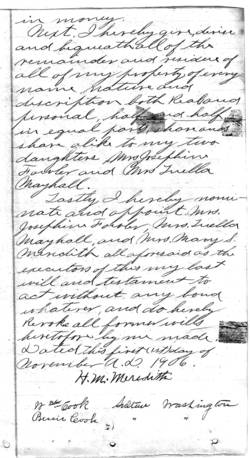 in money.
Next. I hereby give, devise
and bequeath all of the
remainder and residue of
all of my property of every
name nature and
description both Real and
personal, half and half
in equal parts share and
share alike to my two
daughters Mrs Josephine
Fowler and Mrs Luella
Mayhall.
Lastly I hereby nomi-
nate and appoint Mrs.
Josephine Fowler, Mrs Luella
Mayhall, and Mrs. Mary S.
Meredith all aforesaid as the
executors of this my last
will and testament to
act without any bond
whatever, and do hereby
Revoke all former wills
heretofore by me made.
Dated this first (1st) day of
November A.D. 1906.
H. M. Meredith
Wm Cook Washington
Cook " "